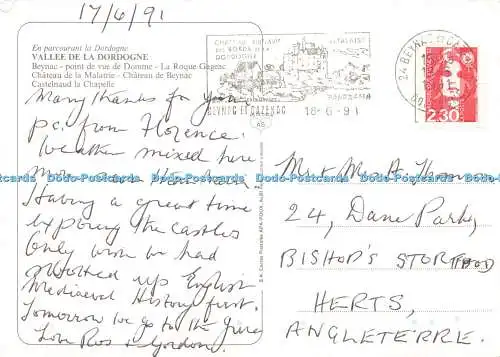 17/6/91
En parcourant la Dordogne
VALLEE DE LA DORDOGNE
Beynac - point de vue de Domme - La Roque-Gageac
Château de la Malatrie - Château de Beynac
Castelnaud la Chapelle
Many thanks for your
p.c. from Florence.
Weather mixed here
Having a great time
exploring the castles
Only wish we had
swotted up English
Mediaeval History first.
Tomorrow we go to the
Love Ros & Gordon.
CHATEAU
DORDOGNE
PANORAMA
BEYNAC ET CAZENAC
18-6-91
24 BEYNAC
2,30
Mr & Mrs A Thomson
24, Dane Park,
BISHOP'S STORTFORD
HERTS,
ANGLETERRE.
Dodo-Postcards Dodo-Postcards Dodo-Postcards Dodo-Postcards
Dodo-Postcards Dodo-Postcards Dodo-Postcards Dodo-Postcards